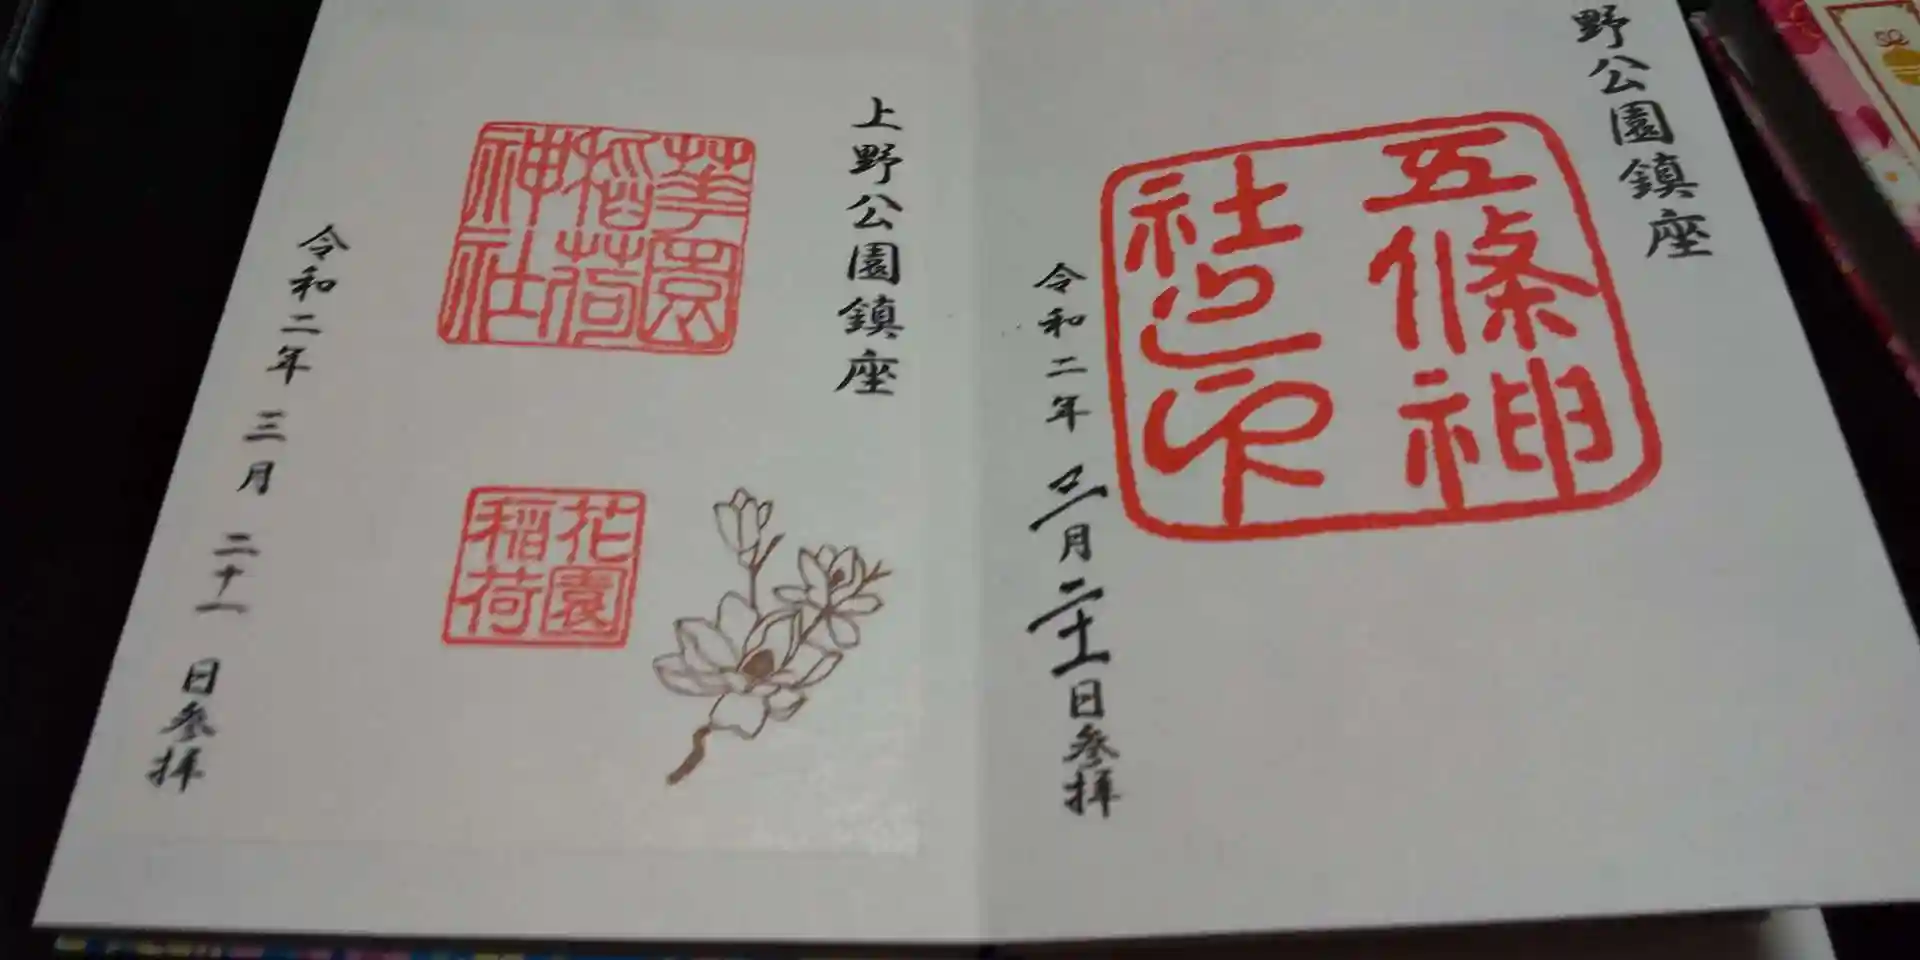 野公園鎮座
五條神
社之印
令和二年三月二十一日参拝
上野公園鎮座
華園
稲荷
神社
花園
稲荷
令和二年三月二十一日参拝